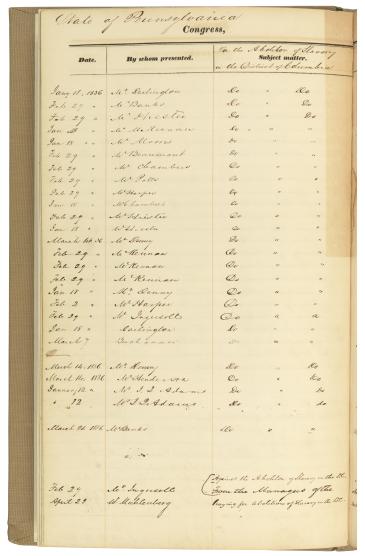 State of Pennsylvania
Congress,
For the Abolition of Slavery
in the District of Columbia
Date. By whom presented. Subject matter.
Jany 18, 1836 Mr Darlington Do " Do
Feb 29 " Mr Banks Do " Do
Feb 29 " Mr Hiester Do " Do
Jan 18 " Mr McKennan Do " "
Jan 18 " Mr Do " "
Feb 29 " Mr Beaumont Do " "
Feb 29 " Mr Chambers Do " "
Feb 29 " Mr Potts Do " "
Feb 29 " Mr Harper Do " "
Jan 18 " Mr Chambers Do " "
Feb 29 " Mr Hiester Do " "
Jan 18 " Mr Do " "
March 36 Mr Denny Do " "
Feb 29 " McKennan Do " "
Feb 29 " McKennan Do " "
Feb 29 " McKennan Do " "
Jan 18 " Mr Denny Do " "
Feb 2 " Mr Harper Do " "
Feb 29 " Mr Ingersoll Do " "
Jan 18 " Darlington Do " "
March 7 Buchanan Do " "
March 14, 1836 Mr Denny Do " Do
March 14, 1836 Mr Henderson Do " Do
January 12 " Mr J Q Adams Do " Do
" 22 Mr J Q Adams Do " Do
March 21 1836 Mr Banks Do " "
Feb 29 Mr Ingersoll Against the Abolition of Slavery in the
From the Managers of the
April 22 Mr Muhlenberg Praying for Abolition of Slavery in the